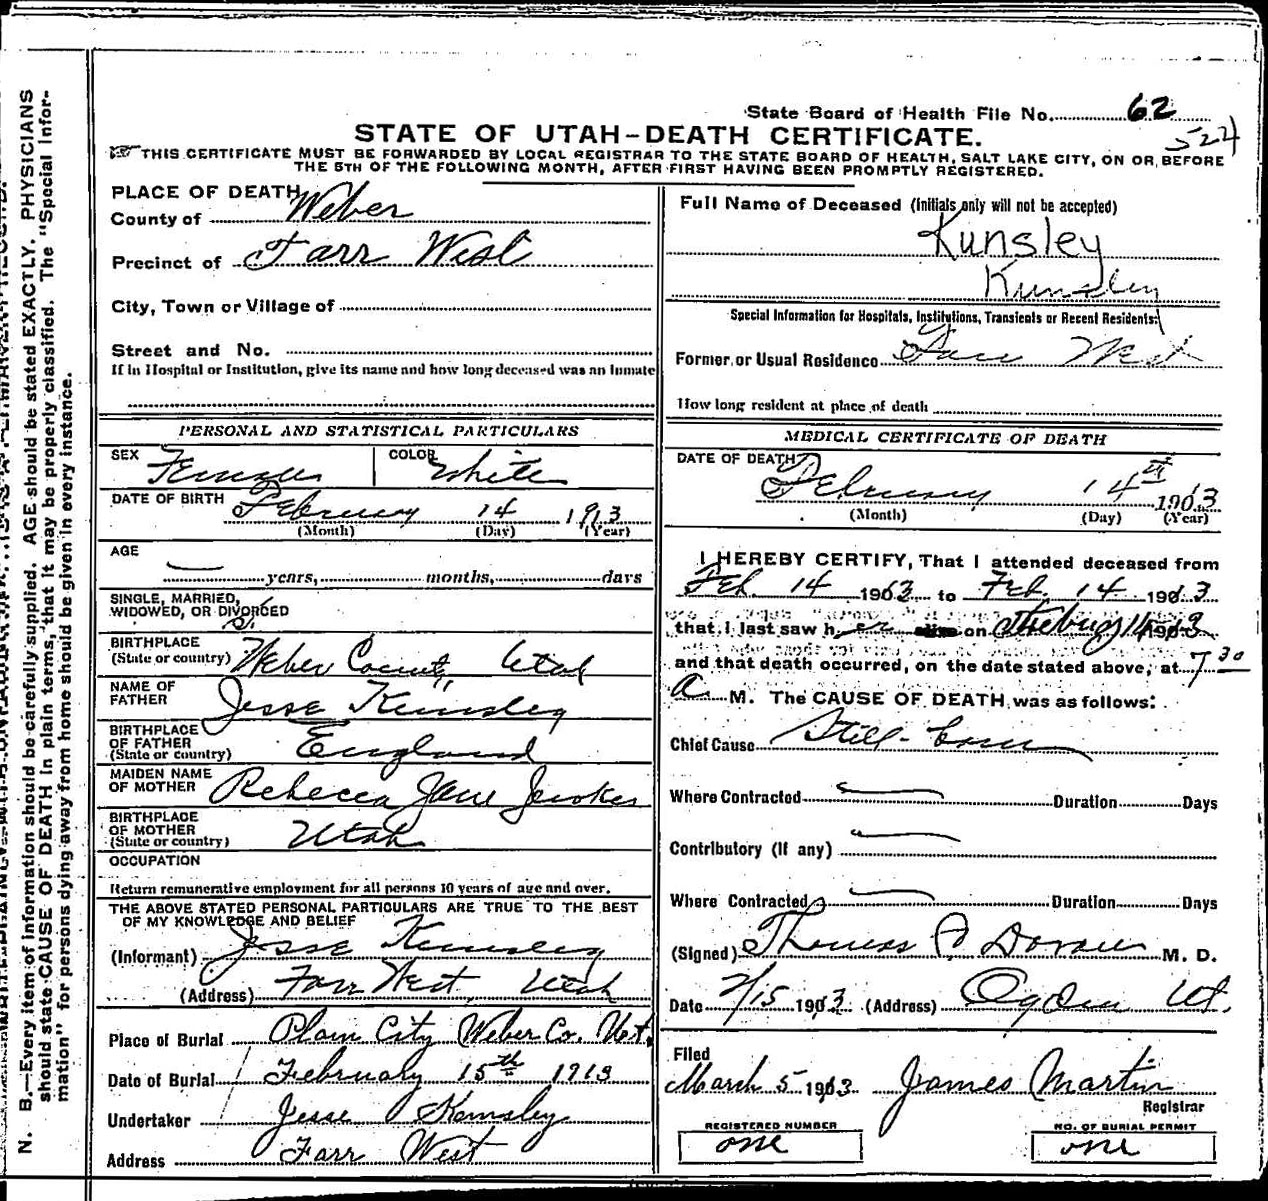 State Board of Health File No. 62
524
STATE OF UTAH-DEATH CERTIFICATE.
THIS CERTIFICATE MUST BE FORWARDED BY LOCAL REGISTRAR TO THE STATE BOARD OF HEALTH, SALT LAKE CITY, ON OR BEFORE
THE 5TH OF THE FOLLOWING MONTH, AFTER FIRST HAVING BEEN PROMPTLY REGISTERED.
PLACE OF DEATH
County of Weber
Precinct of Farr West
City, Town or Village of
Street and No.
If in Hospital or Institution, give its name and how long deceased was an inmate
PERSONAL AND STATISTICAL PARTICULARS
SEX Female COLOR White
DATE OF BIRTH February 14 1913
(Month) (Day) (Year)
AGE
years, months, days
SINGLE, MARRIED,
WIDOWED, OR DIVORCED
BIRTHPLACE
(State or country) Weber County, Utah
NAME OF
FATHER Jesse Kemsley
BIRTHPLACE
OF FATHER
(State or country) England
MAIDEN NAME
OF MOTHER Rebecca Jane
BIRTHPLACE
OF MOTHER
(State or country) Utah
OCCUPATION
Return remunerative employment for all persons 10 years of age and over.
THE ABOVE STATED PERSONAL PARTICULARS ARE TRUE TO THE BEST
OF MY KNOWLEDGE AND BELIEF
(Informant) Jesse Kemsley
(Address) Farr West, Utah
Place of Burial Plain City Weber Co. Ut.
Date of Burial February 15th 1913
Undertaker Jesse Kemsley
Address Farr West
Full Name of Deceased (Initials only will not be accepted)
Kunsley
Kunsley
Special Information for Hospitals, Institutions, Transients or Recent Residents:
Former or Usual Residence Farr West
How long resident at place of death
MEDICAL CERTIFICATE OF DEATH
DATE OF DEATH
February 14th 1913
(Month) (Day) (Year)
I HEREBY CERTIFY, That I attended deceased from
Feb. 14 1913 to Feb. 14 1913
that I last saw her on 14 1913
and that death occurred, on the date stated above, at 7 30
a. M. The CAUSE OF DEATH was as follows:
Chief Cause Still-born
Where Contracted Duration Days
Contributory (If any)
Where Contracted Duration Days
(Signed) Thomas M. D.
Date 2/15 1913 (Address) Ogden Ut.
Filed
March 5 1913 James Martin
Registrar
REGISTERED NUMBER
one
NO. OF BURIAL PERMIT
one
N. B.—Every item of information should be carefully supplied. AGE should be stated EXACTLY. PHYSICIANS
should state CAUSE OF DEATH in plain terms, that it may be properly classified. The "Special Infor-
mation" for persons dying away from home should be given in every instance.